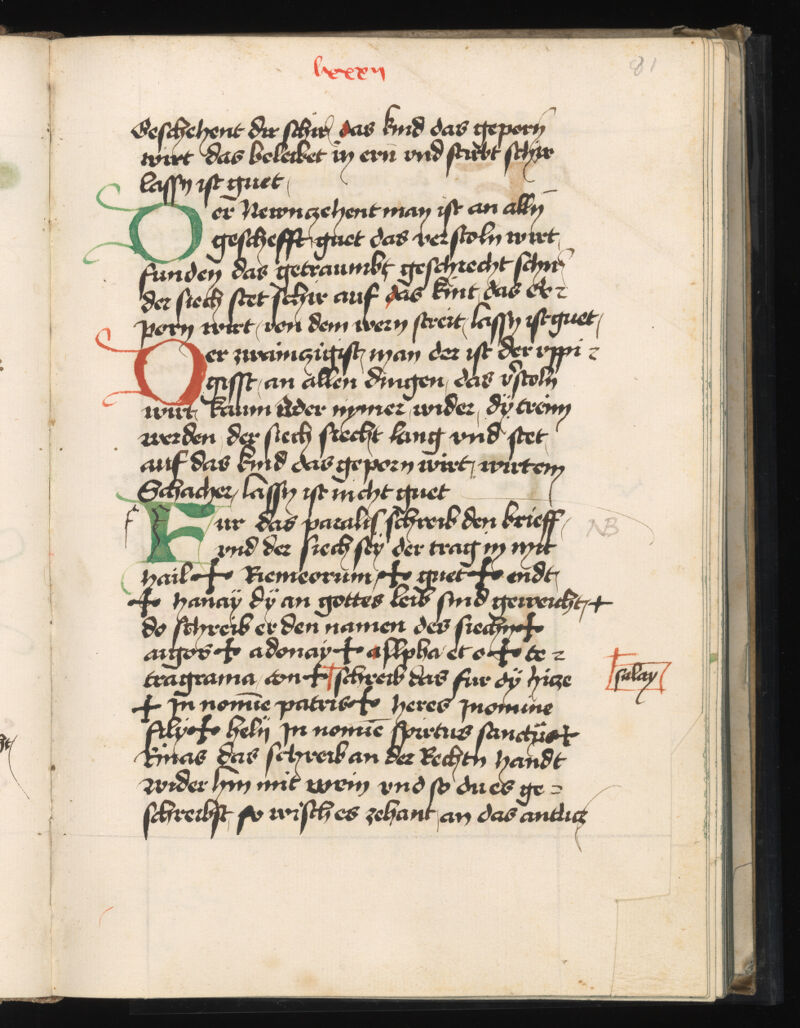 lxxxii
81
Geschehent dir schir das kind das geporn
wirt das beleibet in ern vnd stirbt schir
lassn ist guet
Der Newnzehent man ist an alln
geschefft guet das verstoln wirt
funden das getraumbt geschecht schir
der siech stet schir auf das kint das ge
porn wirt von dem wern streit lassn ist guet
Der zwainzigist man der ist der vppi
gisst an allen dingen das v'stoln
wirt kaum oder nymer wider dÿ trem
werden der siech siecht lang vnd stet
auf das kind das geporn wirt wirt ein
Schacher lassn ist nicht guet
Fur das paralis schreib den brieff
vnd der siech seÿ der trag in mit
NB
hail ✝ Riemeorum ✝ guet ✝ endt
✝ hanaÿ dÿ an gottes leib sind geweicht ✝
do schreib er den namen des siechn ✝
aigos ✝ adonaÿ ✝ allpha et o ✝ te
tragrama ton ✝ schreib das fur dÿ hicze
salaÿ
✝ In nomīe patris ✝ heres In nomine
filÿ ✝ helÿ In nomīe spiritus sanctus ✝
kinas das schreib an der Rechtn handt
wider hin mit wein vnd so du es ge
schreibst so wisch es zehant an das antlicz